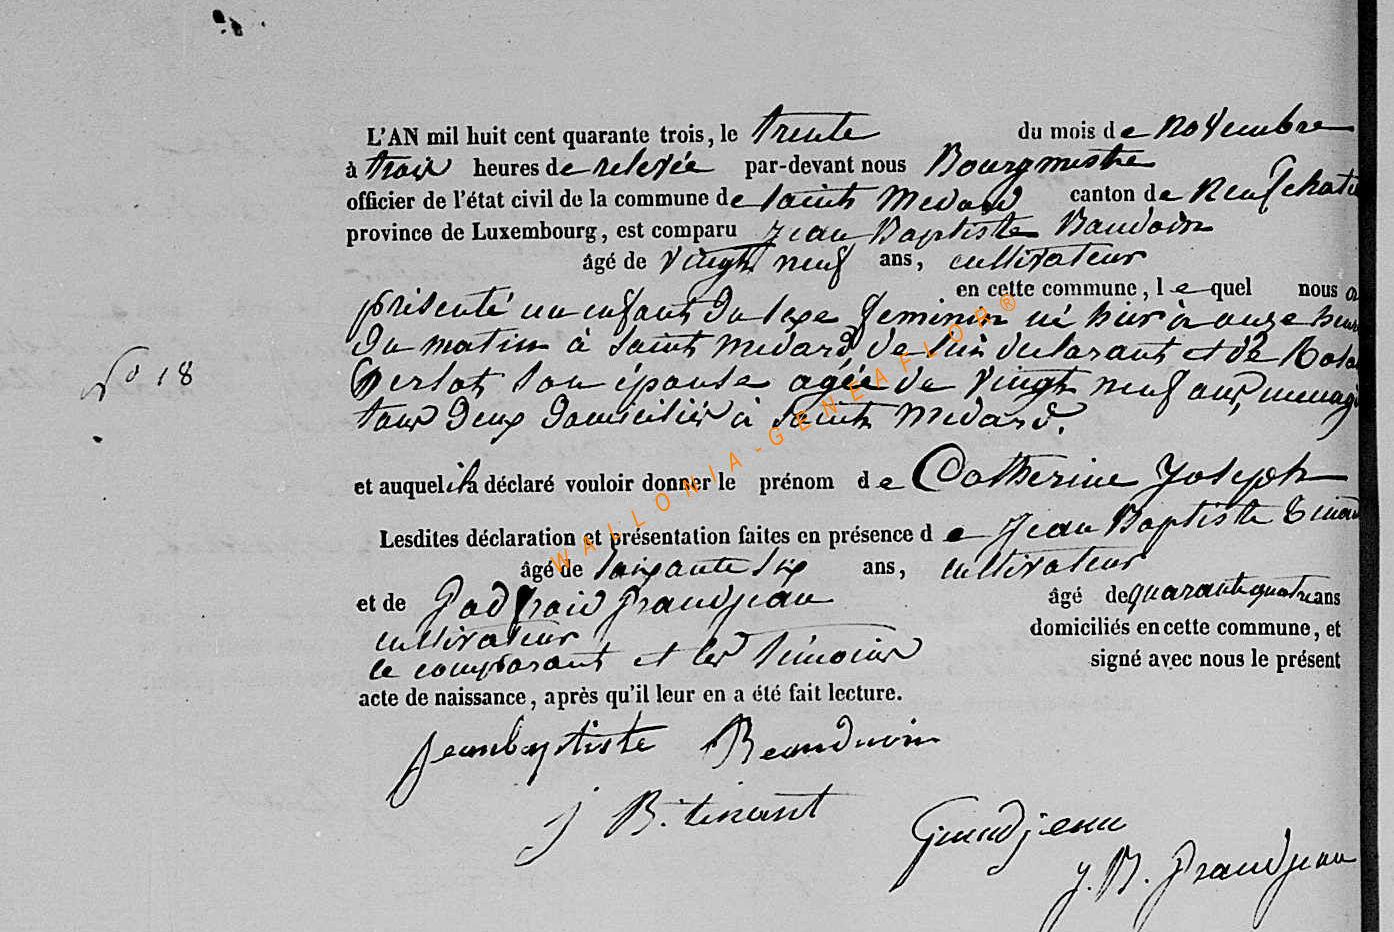 L'AN mil huit cent quarante trois, le trente du mois de novembre
à trois heures de relevée par-devant nous Bourgmestre
officier de l'état civil de la commune de Saint Médard canton de Neufchate
province de Luxembourg, est comparu Jean Baptiste Baudoin
âgé de vingt neuf ans, cultivateur
en cette commune, lequel nous a
présenté un enfant du sexe feminin né hier à onze heures
du matin à Saint Médard, de lui déclarant et de
son épouse agée de vingt neuf ans, menag
tous deux domiciliés à Saint Médard.
N° 18
et auquel il a déclaré vouloir donner le prénom de Catherine Joseph
Lesdites déclaration et présentation faites en présence de Jean Baptiste Tinant
âgé de soixante six ans, cultivateur
et de Grandjean âgé de quarante quatre ans
cultivateur domiciliés en cette commune, et
le comparant et les témoins signé avec nous le présent
acte de naissance, après qu'il leur en a été fait lecture.
Jeanbaptiste Beauduoin
J B. tinant
Grandjean
J. B. Grandjean
WALLONIA-GENEAFLOR®